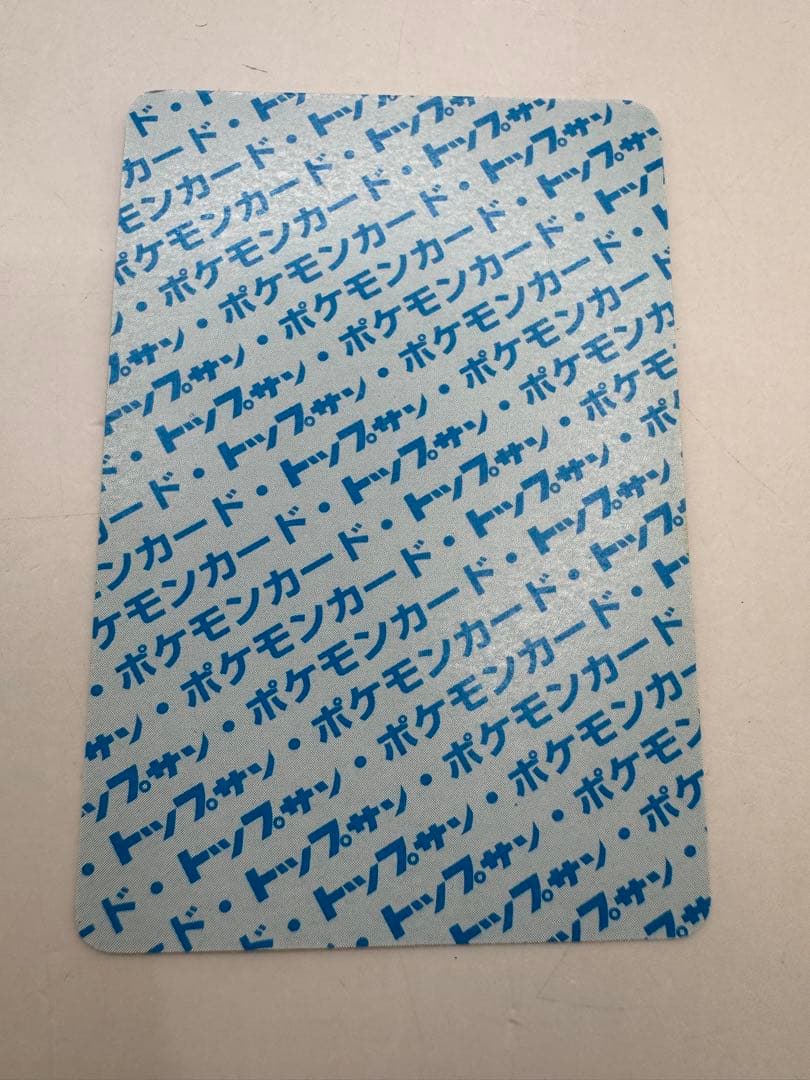 ド・ト
カード・トッ
モンカード・トップ
ポケモンカード・トップサ
・ポケモンカード・トップサン
サン・ポケモンカード・トップサン
トップサン・ポケモンカード・トップサン
・トップサン・ポケモンカード・トップサ
ド・トップサン・ポケモンカード・トッ
ード・トップサン・ポケモンカード・
ンカード・トップサン・ポケモンカー
ケモンカード・トップサン・ポケモンカ
・ポケモンカード・トップサン・ポケモ
サン・ポケモンカード・トップサン・ポ
ップサン・ポケモンカード・トップサン
・トップサン・ポケモンカード・トップ
ド・トップサン・ポケモンカード・ト
ド・トップサン・ポケモンカード
ド・トップサン・ポケモンカー
・トップサン・ポケモン
トップサン・ポケ
トップサン・